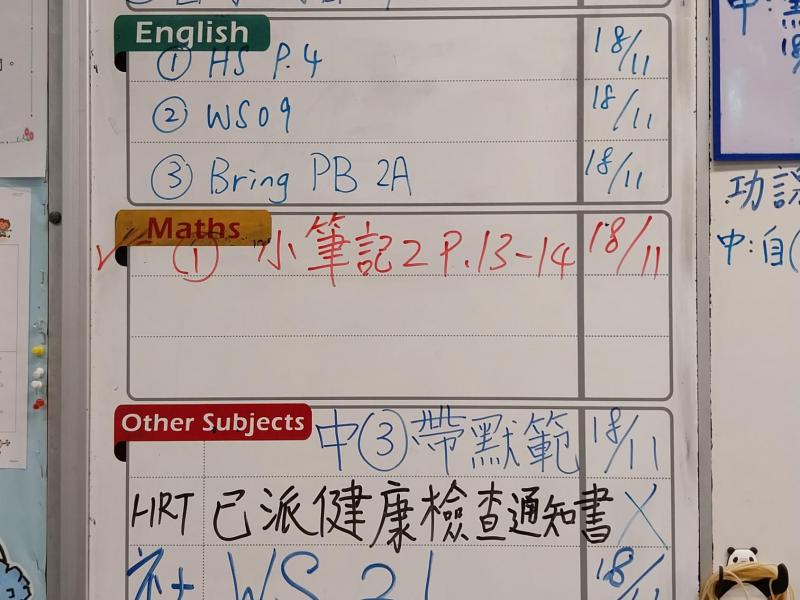 English
① HS P.4 18/11
② WS09 18/11
③ Bring PB 2A 18/11
Maths
✓ ① 小筆記2 P.13-14 18/11
Other Subjects
中③帶默範 18/11
HRT 已派健康檢查通知書 X
WS 21 18/11
功課
中:自(